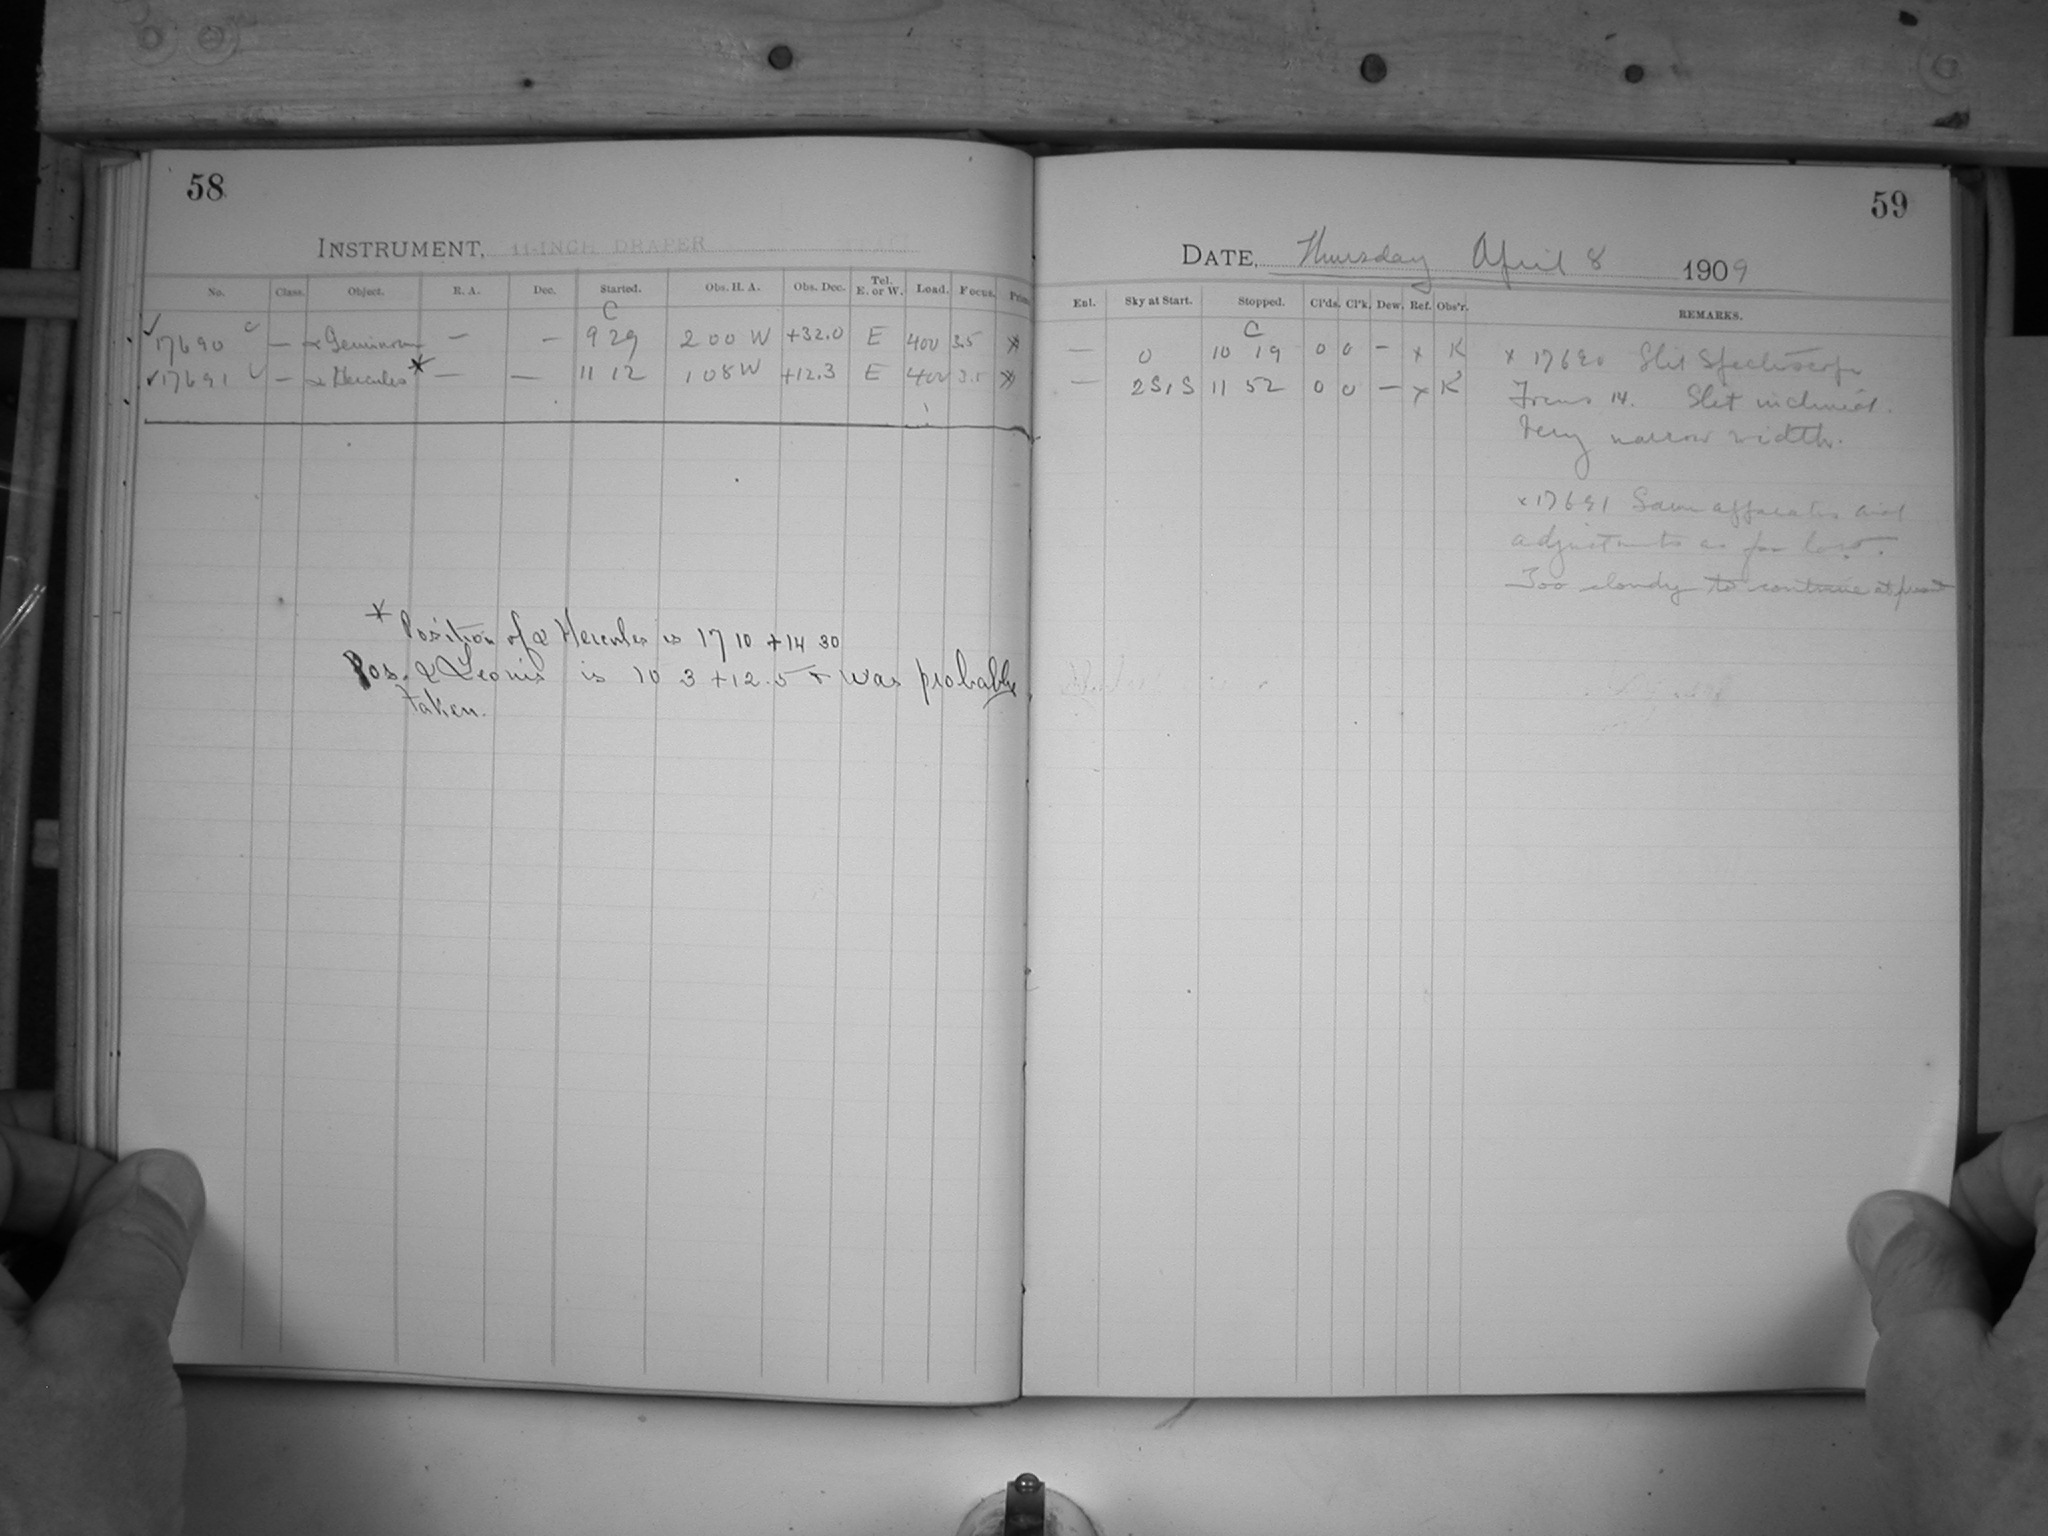 58
INSTRUMENT, 11-INCH DRAPER
No. Class. Object. R. A. Dec. Started. Obs. H. A. Obs. Dec. Tel. E. or W. Load. Focus. Prism
C
17690 — α Geminorum — — 9 29 2 00 W +32.0 E 400 3.5 *
17691 — α Hercules * — — 11 12 1 08 W +12.3 E 400 3.5 *
* Position of α Hercules is 17 10 +14 30
Pos. α Leonis is 10 3 +12.5 & was probably
taken.
59
DATE, Thursday April 8 1909
Enl. Sky at Start. Stopped. Cl'ds. Cl'k. Dew. Ref. Obs'r. REMARKS.
C
— 0 10 19 0 0 — x K
— 2S,S 11 52 0 0 — x K
x 17690 Slit Spectroscope
Focus 14. Slit inclined.
Very narrow width.
x 17691 Same apparatus and
adjustments as for last.
Too cloudy to continue at present